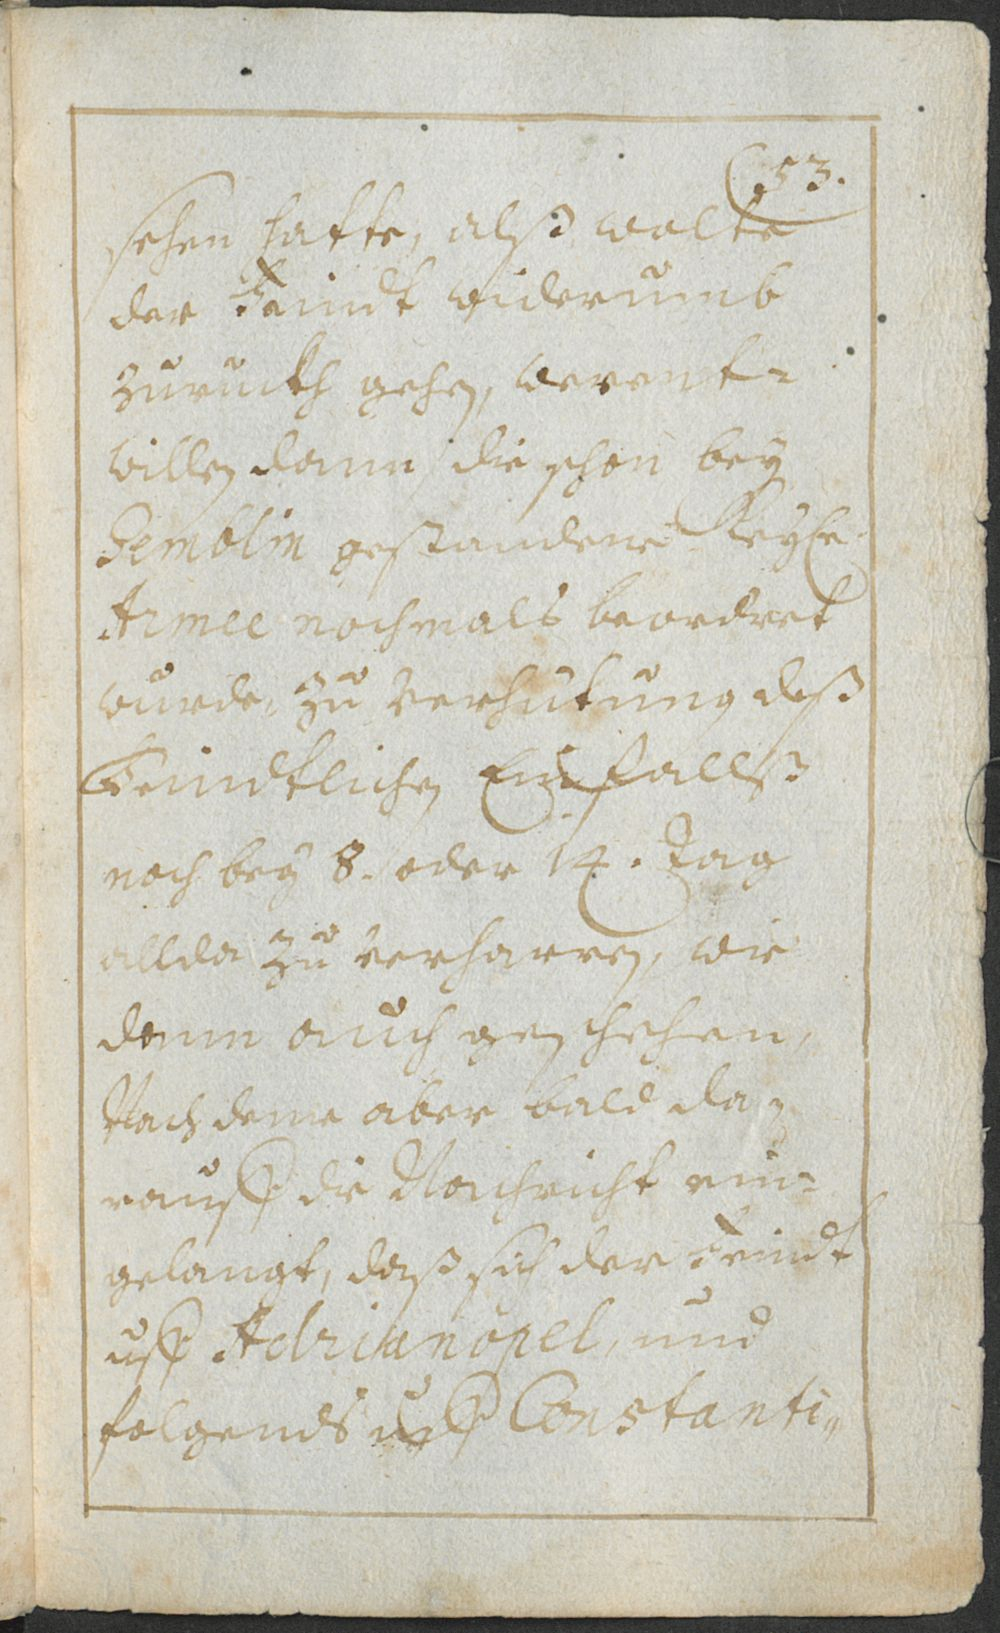 53.
sehen hatte, alß wolte
der Feindt widerumb
zuruckh gehen, derent=
willen dann die schon bey
Semblin gestandene Keyße
Armee nochmals beordret
wurde, zu verhütung deß
Feindtlichen Einfallß
noch bey 8. oder 14. Tag
allda zu verharren, wie
dann auch geschehen,
Nachdeme aber bald da=
rauff die Nachricht ein=
gelangt, daß sich der Feindt
uff Adrianopel, und
folgends uff Constanti„